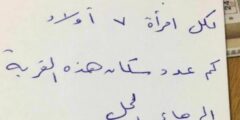 لكل امرأة ٧ أولاد
كم عدد سكان هذه القرية
الرجاء الحل